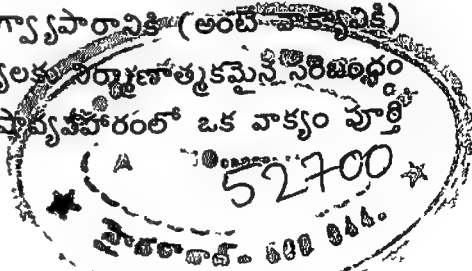 గ్వ్యాపారానికి (అంటే వాక్యానికి)
్యలకు నిర్మాణాత్మకమైన సంబంధం
షావ్యవహారంలో ఒక వాక్యం పూర్తి
52700
హైదరాబాద్ - 500 044.